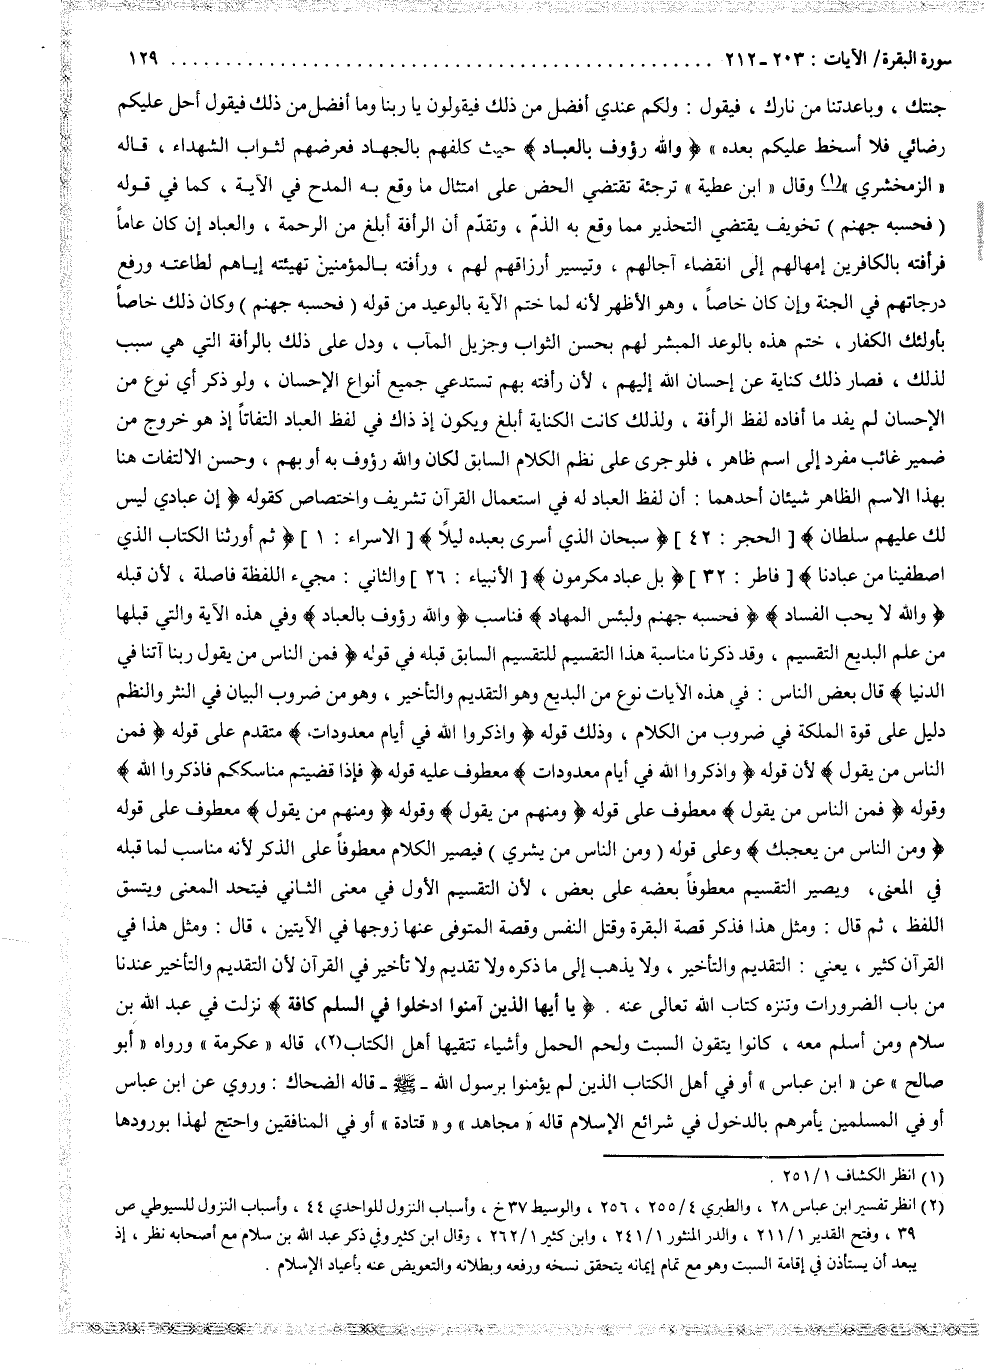 سورة البقرة/ الآيات : ٢٠٣ ـ ٢١٢ . . . . . . . . . . . . . . . . . . . . . . . . . . . . . . . . . . . . . . . . . . ١٢٩
جنتك ، وباعدتنا من نارك ، فيقول : ولكم عندي أفضل من ذلك فيقولون يا ربنا وما أفضل من ذلك فيقول أحل عليكم
رضائي فلا أسخط عليكم بعده » ﴿ والله رؤوف بالعباد ﴾ حيث كلفهم بالجهاد فعرضهم لثواب الشهداء ، قاله
« الزمخشري »(١) وقال « ابن عطية » ترجئة تقتضي الحض على امتثال ما وقع به المدح في الآية ، كما في قوله
( فحسبه جهنم ) تخويف يقتضي التحذير مما وقع به الذمّ ، وتقدّم أن الرأفة أبلغ من الرحمة ، والعباد إن كان عاماً
فرأفته بالكافرين إمهالهم إلى انقضاء آجالهم ، وتيسير أرزاقهم لهم ، ورأفته بالمؤمنين تهيئته إياهم لطاعته ورفع
درجاتهم في الجنة وإن كان خاصاً ، وهو الأظهر لأنه لما ختم الآية بالوعيد من قوله ( فحسبه جهنم ) وكان ذلك خاصاً
بأولئك الكفار ، ختم هذه بالوعد المبشر لهم بحسن الثواب وجزيل المآب ، ودل على ذلك بالرأفة التي هي سبب
لذلك ، فصار ذلك كناية عن إحسان الله إليهم ، لأن رأفته بهم تستدعي جميع أنواع الإحسان ، ولو ذكر أي نوع من
الإحسان لم يفد ما أفاده لفظ الرأفة ، ولذلك كانت الكناية أبلغ ويكون إذ ذاك في لفظ العباد التفاتاً إذ هو خروج من
ضمير غائب مفرد إلى اسم ظاهر ، فلو جرى على نظم الكلام السابق لكان والله رؤوف به أو بهم ، وحسن الالتفات هنا
بهذا الاسم الظاهر شيئان أحدهما : أن لفظ العباد له في استعمال القرآن تشريف واختصاص كقوله ﴿ إن عبادي ليس
لك عليهم سلطان ﴾ [ الحجر : ٤٢ ] ﴿ سبحان الذي أسرى بعبده ليلاً ﴾ [ الاسراء : ١ ] ﴿ ثم أورثنا الكتاب الذي
اصطفينا من عبادنا ﴾ [ فاطر : ٣٢ ] ﴿ بل عباد مكرمون ﴾ [ الأنبياء : ٢٦ ] والثاني : مجيء اللفظة فاصلة ، لأن قبله
﴿ والله لا يحب الفساد ﴾ ﴿ فحسبه جهنم ولبئس المهاد ﴾ فناسب ﴿ والله رؤوف بالعباد ﴾ وفي هذه الآية والتي قبلها
من علم البديع التقسيم ، وقد ذكرنا مناسبة هذا التقسيم للتقسيم السابق قبله في قوله ﴿ فمن الناس من يقول ربنا آتنا في
الدنيا ﴾ قال بعض الناس : في هذه الآيات نوع من البديع وهو التقديم والتأخير ، وهو من ضروب البيان في النثر والنظم
دليل على قوة الملكة في ضروب من الكلام ، وذلك قوله ﴿ واذكروا الله في أيام معدودات ﴾ متقدم على قوله ﴿ فمن
الناس من يقول ﴾ لأن قوله ﴿ واذكروا الله في أيام معدودات ﴾ معطوف عليه قوله ﴿ فإذا قضيتم مناسككم فاذكروا الله ﴾
وقوله ﴿ فمن الناس من يقول ﴾ معطوف على قوله ﴿ ومنهم من يقول ﴾ وقوله ﴿ ومنهم من يقول ﴾ معطوف على قوله
﴿ ومن الناس من يعجبك ﴾ وعلى قوله ( ومن الناس من يشري ) فيصير الكلام معطوفاً على الذكر لأنه مناسب لما قبله
في المعنى، ويصير التقسيم معطوفاً بعضه على بعض ، لأن التقسيم الأول في معنى الثاني فيتحد المعنى ويتسق
اللفظ ، ثم قال : ومثل هذا فذكر قصة البقرة وقتل النفس وقصة المتوفى عنها زوجها في الآيتين ، قال : ومثل هذا في
القرآن كثير ، يعني : التقديم والتأخير ، ولا يذهب إلى ما ذكره ولا تقديم ولا تأخير في القرآن لأن التقديم والتأخير عندنا
من باب الضرورات وتنزه كتاب الله تعالى عنه . ﴿ يا أيها الذين آمنوا ادخلوا في السلم كافة ﴾ نزلت في عبد الله بن
سلام ومن أسلم معه ، كانوا يتقون السبت ولحم الحمل وأشياء تتقيها أهل الكتاب(٢)، قاله « عكرمة » ورواه « أبو
صالح » عن « ابن عباس » أو في أهل الكتاب الذين لم يؤمنوا برسول الله ـ ﷺ ـ قاله الضحاك : وروي عن ابن عباس
أو في المسلمين يأمرهم بالدخول في شرائع الإسلام قاله « مجاهد » و « قتادة » أو في المنافقين واحتج لهذا بورودها
(١) انظر الكشاف ٢٥١/١ .
(٢) انظر تفسير ابن عباس ٢٨ ، والطبري ٢٥٥/٤ ، ٢٥٦ ، والوسيط ٣٧ خ ، وأسباب النزول للواحدي ٤٤ ، وأسباب النزول للسيوطي ص
٣٩ ، وفتح القدير ٢١١/١ ، والدر المنثور ٢٤١/١ ، وابن كثير ٢٦٢/١ ، وقال ابن كثير وفي ذكر عبد الله بن سلام مع أصحابه نظر ، إذ
يبعد أن يستأذن في إقامة السبت وهو مع تمام إيمانه يتحقق نسخه ورفعه وبطلانه والتعويض عنه بأعياد الإسلام .